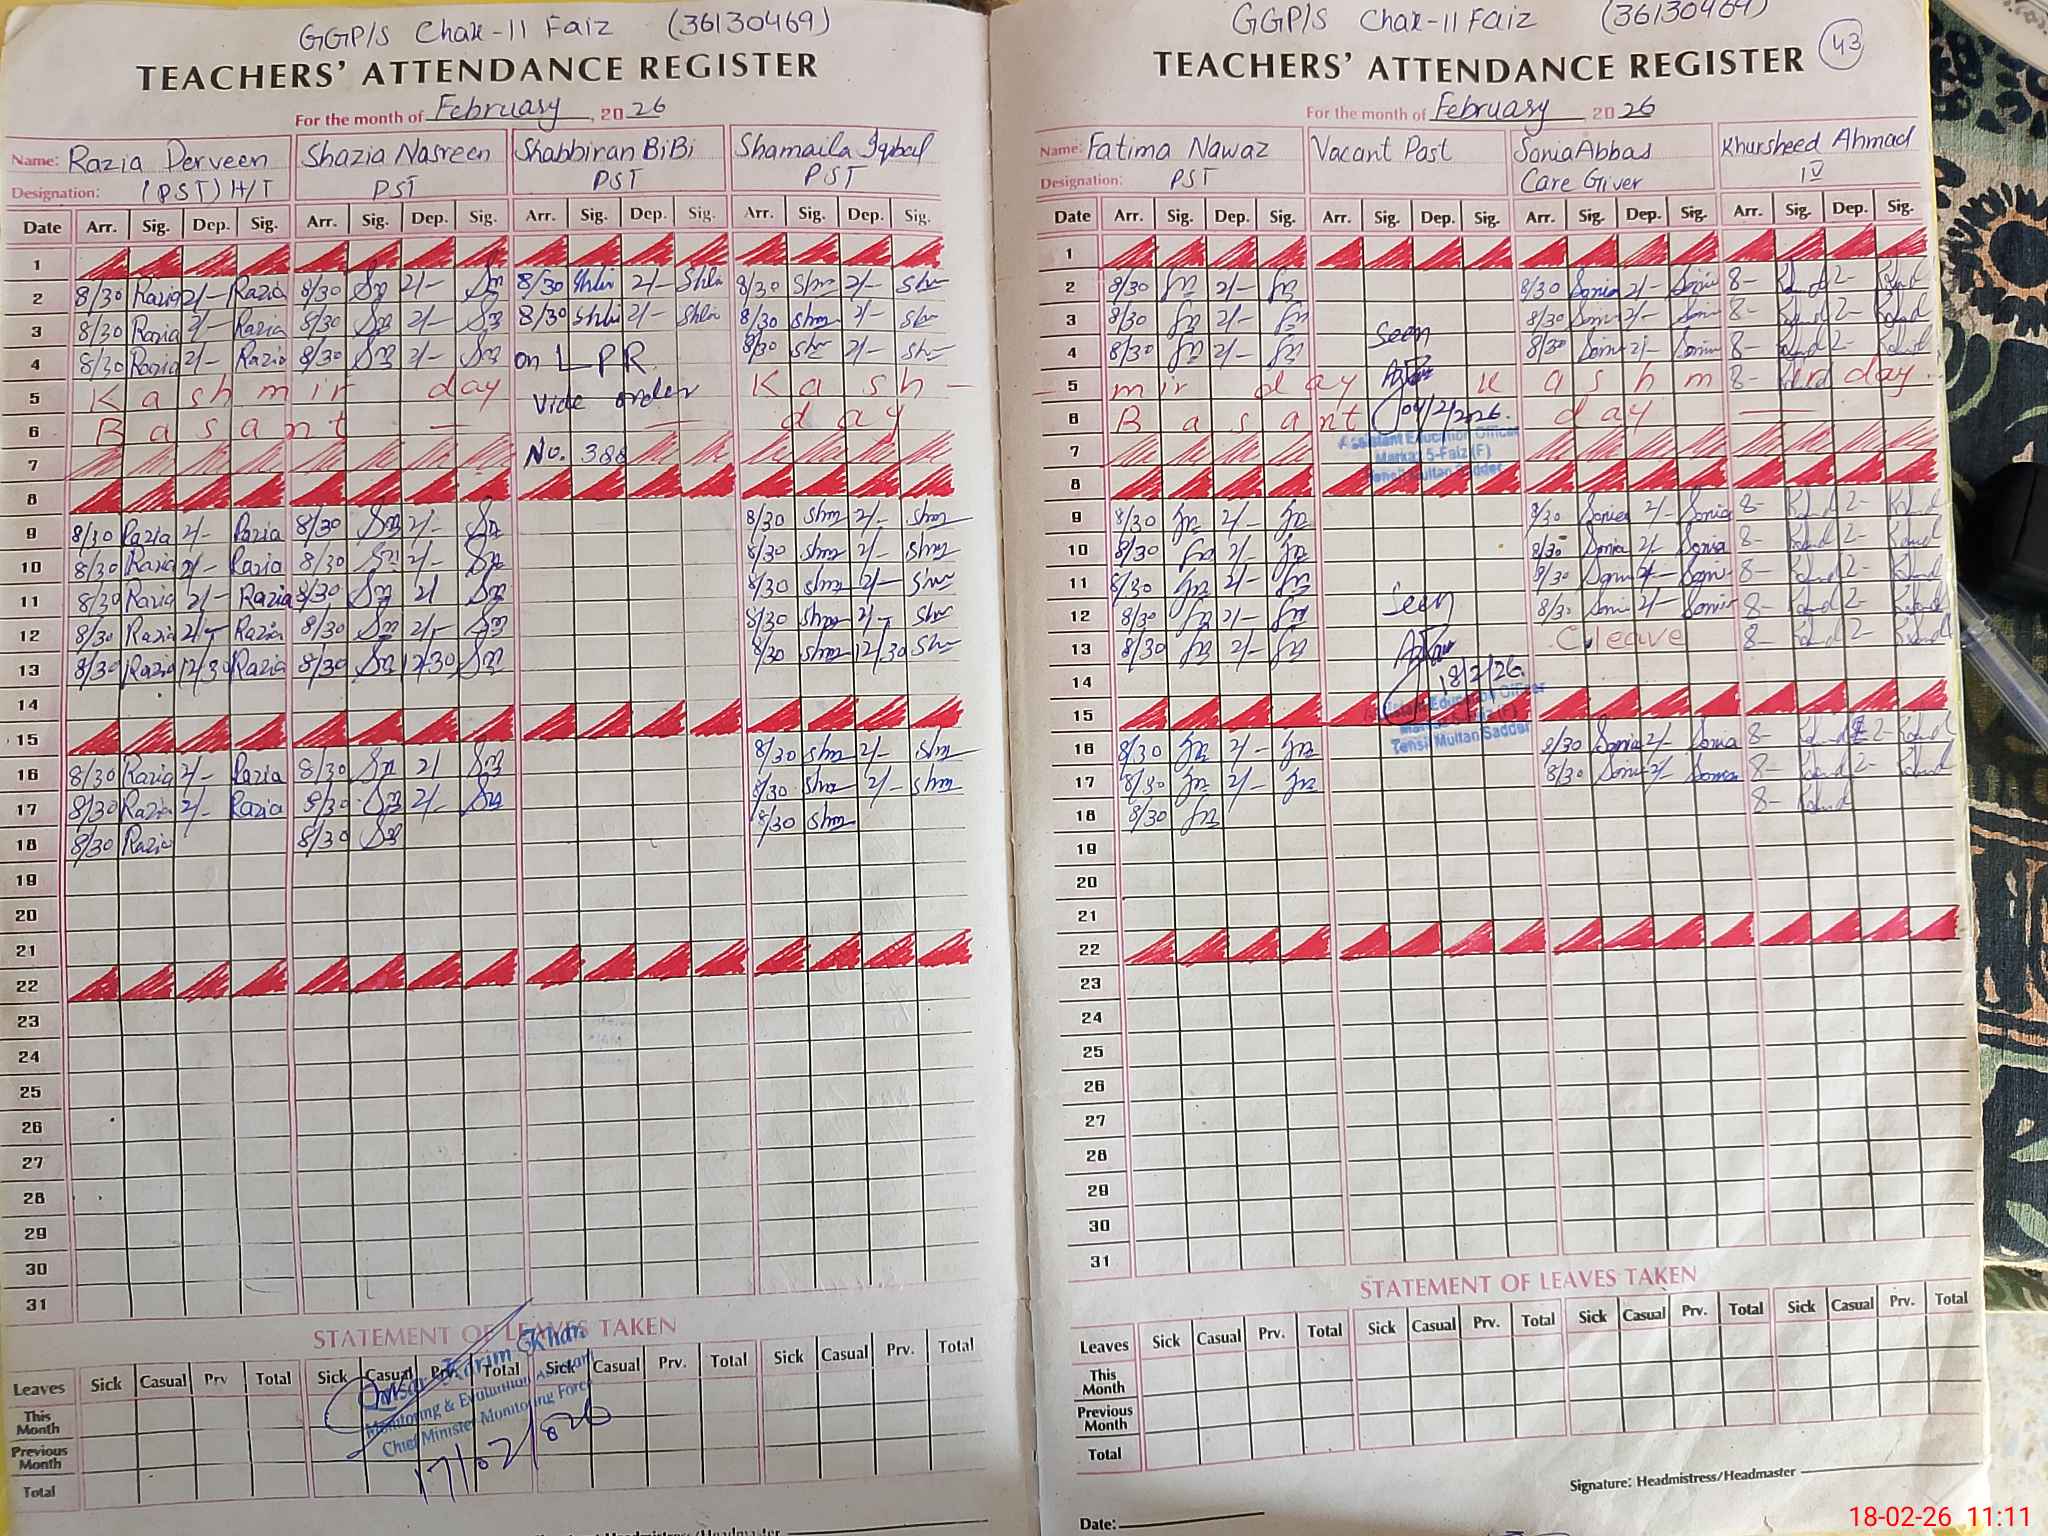 GGP/S Chak-11 Faiz (36130469)
TEACHERS' ATTENDANCE REGISTER
For the month of February, 2026
Name: Razia Perveen Shazia Nasreen Shabbiran BiBi Shamaila Iqbal
Designation: (PST) H/T PST PST PST
Date Arr. Sig. Dep. Sig. Arr. Sig. Dep. Sig. Arr. Sig. Dep. Sig. Arr. Sig. Dep. Sig.
1
2 8/30 Razia 2/- Razia 8/30 Sn 2/- Sn 8/30 Shbi 2/- Shbi 8/30 Shm 2/- Shm
3 8/30 Razia 2/- Razia 8/30 Sn 2/- Sn 8/30 Shbi 2/- Shbi 8/30 Shm 2/- Shm
4 8/30 Razia 2/- Razia 8/30 Sn 2/- Sn on LPR 8/30 Shm 2/- Shm
5 Kashmir day Vide order Kash-
6 Basant — — day
7 No. 388
8
9 8/30 Razia 2/- Razia 8/30 Sn 2/- Sn 8/30 Shm 2/- Shm
10 8/30 Razia 2/- Razia 8/30 Sn 2/- Sn 8/30 Shm 2/- Shm
11 8/30 Razia 2/- Razia 8/30 Sn 2/ Sn 8/30 Shm 2/- Shm
12 8/30 Razia 2/- Razia 8/30 Sn 2/- Sn 8/30 Shm 2/- Shm
13 8/30 Razia 12/30 Razia 8/30 Sn 12/30 Sn 8/30 Shm 12/30 Shm
14
15
16 8/30 Razia 2/- Razia 8/30 Sn 2/ Sn 8/30 Shm 2/- Shm
17 8/30 Razia 2/- Razia 8/30 Sn 2/- Sn 8/30 Shm 2/- Shm
18 8/30 Razia 8/30 Sn 8/30 Shm
19
20
21
22
23
24
25
26
27
28
29
30
31
STATEMENT OF LEAVES TAKEN
Leaves Sick Casual Prv Total Sick Casual Prv. Total Sick Casual Prv. Total Sick Casual Prv. Total
This Month
Previous Month
Total
Karim Khan
Monitoring & Evaluation Assistant
Chief Minister Monitoring Force
17/02/026
GGP/S Chak-11 Faiz (36130469)
43
TEACHERS' ATTENDANCE REGISTER
For the month of February 2026
Name: Fatima Nawaz Vacant Post Sonia Abbas Khursheed Ahmad
Designation: PST Care Giver IV
Date Arr. Sig. Dep. Sig. Arr. Sig. Dep. Sig. Arr. Sig. Dep. Sig. Arr. Sig. Dep. Sig.
1
2 8/30 Fn 2/- Fn 8/30 Sonia 2/- Sonia 8- 2-
3 8/30 Fn 2/- Fn Seen 8/30 Soni 2/- Soni 8- 2-
4 8/30 Fn 2/- Fn 8/30 Soni 2/- Sonia 8- 2-
5 mir day Kashm 8- day
6 Basant 04/2/2026. day —
Assistant Education Officer
7 Markaz 5-Faiz (F)
8 Tehsil Multan Sadder
9 8/30 Fn 2/- Fn 8/30 Sonia 2/- Sonia 8- 2-
10 8/30 Fn 2/- Fn 8/30 Sonia 2/- Sonia 8- 2-
11 8/30 Fn 2/- Fn 8/30 Soni 2/- Soni 8- 2-
12 8/30 Fn 2/- Fn Seen 8/30 Soni 2/- Sonia 8- 2-
13 8/30 Fn 2/- Fn C.leave 8- 2-
14 18/2/26.
15 Assistant Education Officer
16 8/30 Fn 2/- Fn Tehsil Multan Sadder 8/30 Sonia 2/- Sonia 8- 2-
17 8/30 Fn 2/- Fn 8/30 Soni 2/- Sonia 8- 2-
18 8/30 Fn 8-
19
20
21
22
23
24
25
26
27
28
29
30
31
STATEMENT OF LEAVES TAKEN
Leaves Sick Casual Prv. Total Sick Casual Prv. Total Sick Casual Prv. Total Sick Casual Prv. Total
This Month
Previous Month
Total
Signature: Headmistress/Headmaster
Date:
18-02-26 11:11